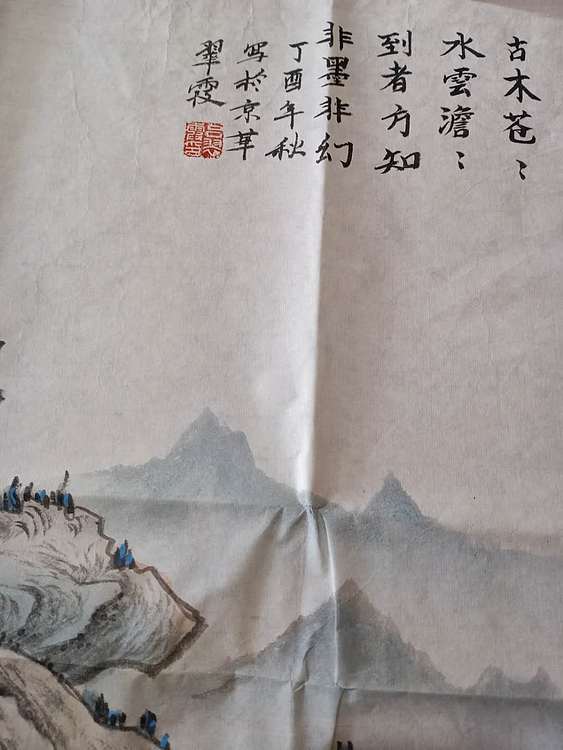 古木苍〻
水雲澹〻
到者方知
非墨非幻
丁酉年秋
写於京華
翠霞